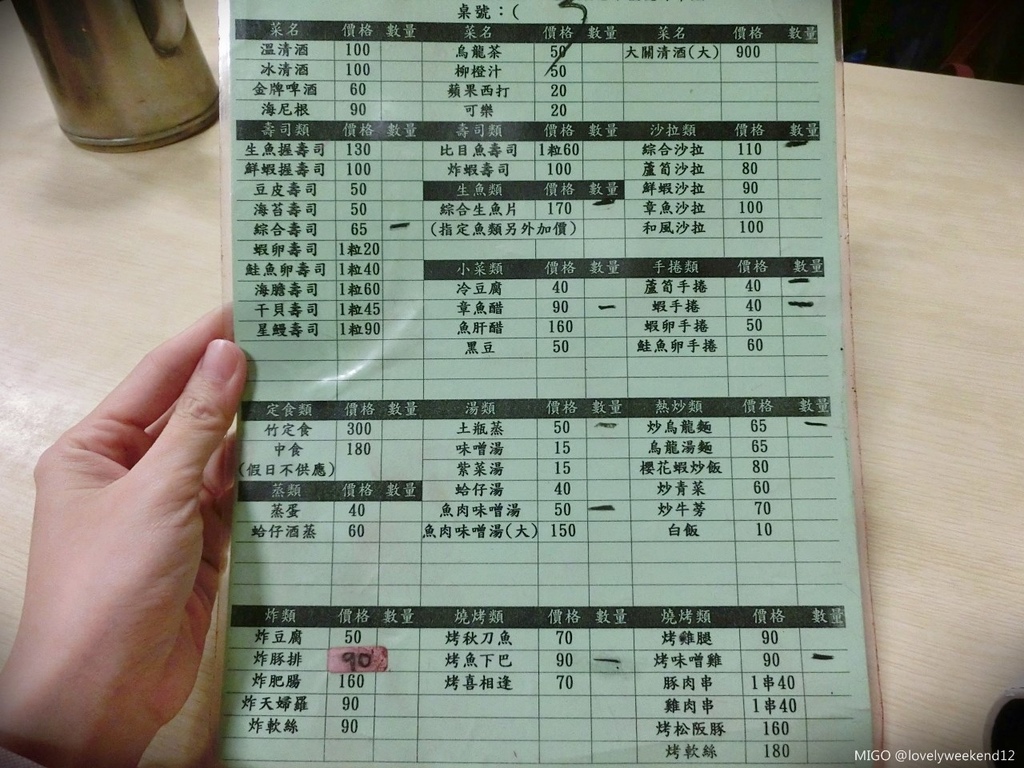 桌號：( 3
菜名 價格 數量 菜名 價格 數量 菜名 價格 數量
溫清酒 100 烏龍茶 50 大關清酒(大) 900
冰清酒 100 柳橙汁 50
金牌啤酒 60 蘋果西打 20
海尼根 90 可樂 20
壽司類 價格 數量 壽司類 價格 數量 沙拉類 價格 數量
生魚握壽司 130 比目魚壽司 1粒60 綜合沙拉 110
鮮蝦握壽司 100 炸蝦壽司 100 蘆筍沙拉 80
豆皮壽司 50 生魚類 價格 數量 鮮蝦沙拉 90
海苔壽司 50 綜合生魚片 170 章魚沙拉 100
綜合壽司 65 (指定魚類另外加價) 和風沙拉 100
蝦卵壽司 1粒20
鮭魚卵壽司 1粒40 小菜類 價格 數量 手捲類 價格 數量
海膽壽司 1粒60 冷豆腐 40 蘆筍手捲 40
干貝壽司 1粒45 章魚醋 90 蝦手捲 40
星鰻壽司 1粒90 魚肝醋 160 蝦卵手捲 50
黑豆 50 鮭魚卵手捲 60
定食類 價格 數量 湯類 價格 數量 熱炒類 價格 數量
竹定食 300 土瓶蒸 50 炒烏龍麵 65
中食 180 味噌湯 15 烏龍湯麵 65
(假日不供應) 紫菜湯 15 櫻花蝦炒飯 80
蒸類 價格 數量 蛤仔湯 40 炒青菜 60
蒸蛋 40 魚肉味噌湯 50 炒牛蒡 70
蛤仔酒蒸 60 魚肉味噌湯(大) 150 白飯 10
炸類 價格 數量 燒烤類 價格 數量 燒烤類 價格 數量
炸豆腐 50 烤秋刀魚 70 烤雞腿 90
炸豚排 90 烤魚下巴 90 烤味噌雞 90
炸肥腸 160 烤喜相逢 70 豚肉串 1串40
炸天婦羅 90 雞肉串 1串40
炸軟絲 90 烤松阪豚 160
烤軟絲 180
MIGO @lovelyweekend12